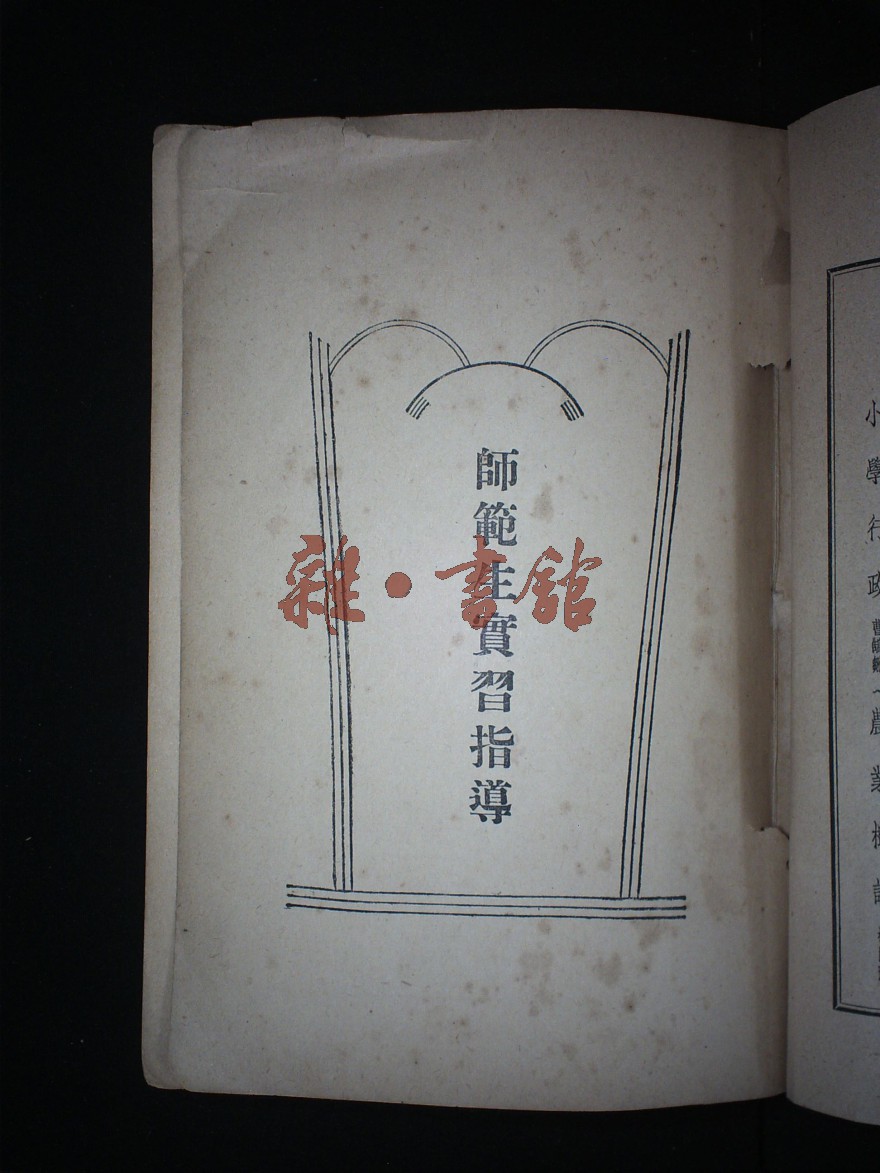 師範生實習指導
雜·書館
小學行政
農業概